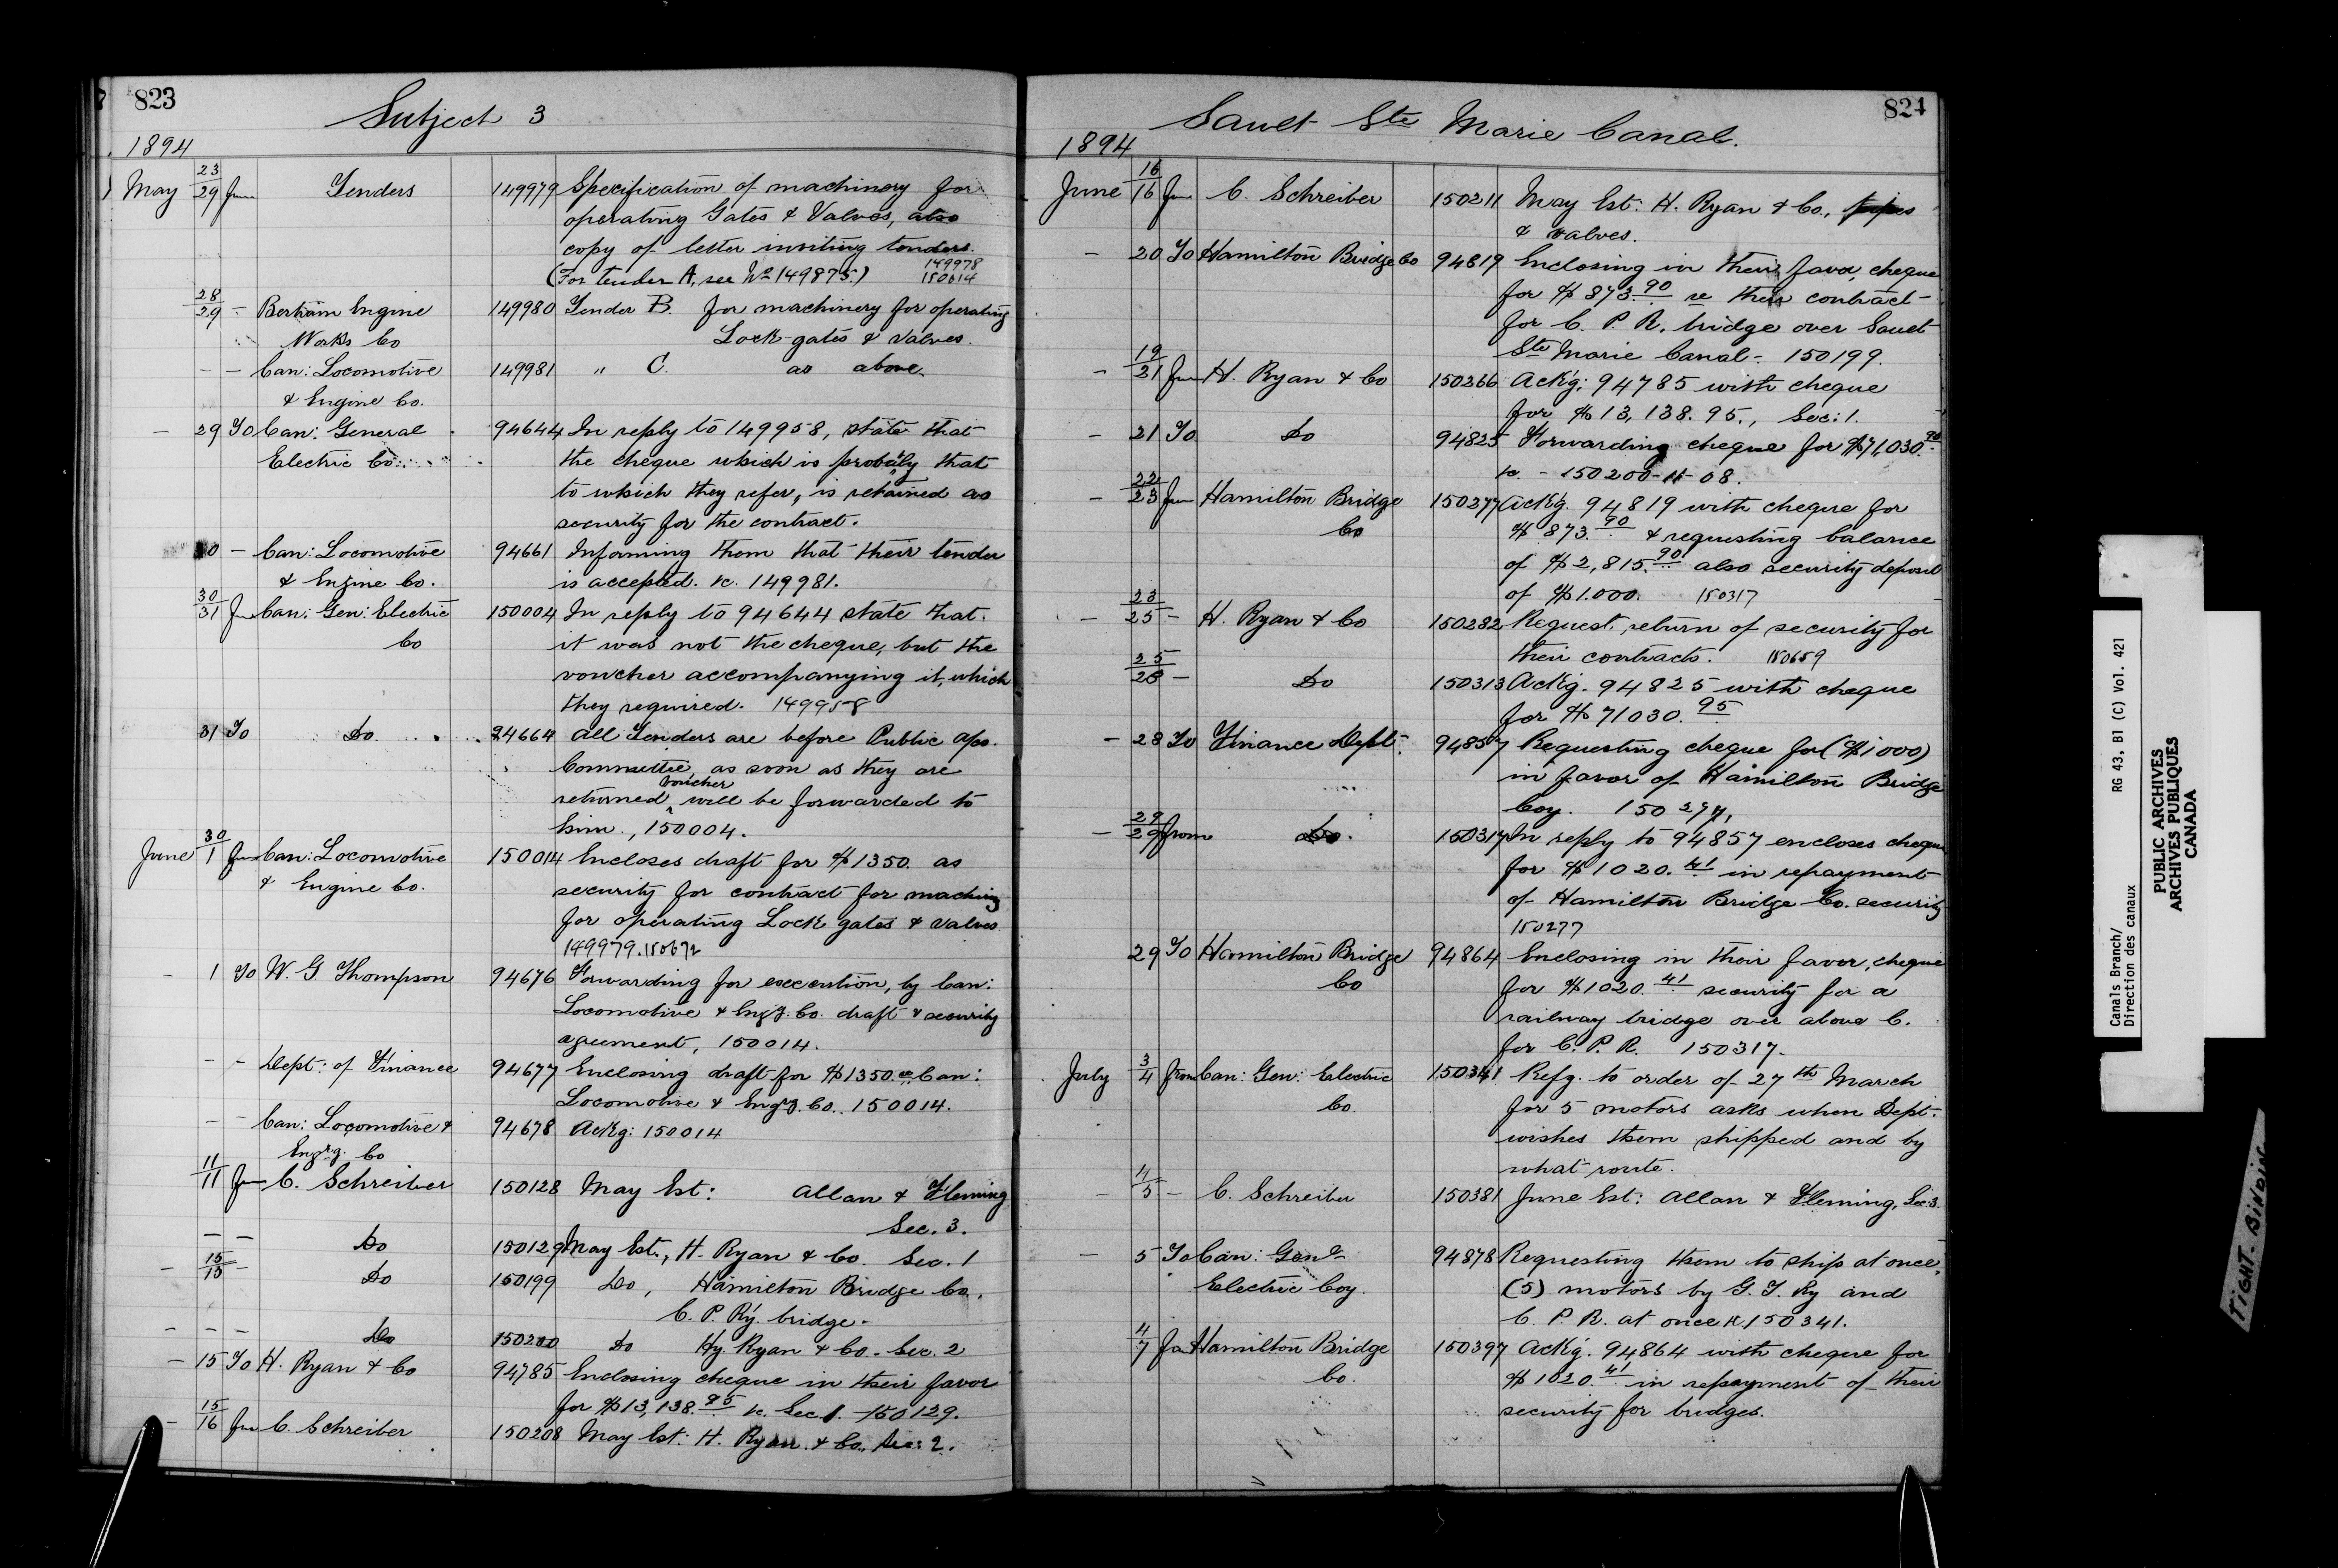 823
Subject 3
1894
May 23/29 from Tenders 149979 Specification of machinery for
operating Gates & Valves, also
copy of letter inviting tenders.
(For tender A, see No 149875.) 149978 150614
28/29 - Bertram Engine 149980 Tender B. for machinery for operating
Works Co Lock-gates & valves.
- - Can: Locomotive 149981 " C. as above.
& Engine Co.
- 29 To Can: General 94644 In reply to 149958, state that
Electric Co. the cheque which is probably that
to which they refer, is retained as
security for the contract.
30 - Can: Locomotive 94661 Informing them that their tender
& Engine Co. is accepted. re. 149981.
30/31 from Can: Gen: Electric 150004 In reply to 94644 state that
Co it was not the cheque, but the
voucher accompanying it, which
they required. 149958
31 To Do. 94664 All Tenders are before Public a/cs.
Committee, as soon as they are
returned voucher will be forwarded to
him., 150004.
June 30/1 from Can: Locomotive 150014 Encloses draft for $1350. as
& Engine Co. security for contract for machinery
for operating Lock gates & valves
149979. 150672
- 1 To W. G. Thompson 94676 Forwarding for execution, by Can:
Locomotive & Eng'g. Co. draft & security
agreement, 150014.
- - Dept: of Finance 94677 Enclosing draft for $1350. re Can:
Locomotive & Eng'g. Co. 150014.
- - Can: Locomotive & 94678 Ackg: 150014
Eng'rg. Co
11/11 from C. Schreiber 150128 May Est: Allan & Fleming
Sec. 3.
- - Do 150129 May Est., H. Ryan & Co. Sec. 1
- 15/15 - Do 150199 Do, Hamilton Bridge Co.,
C. P. Ry. bridge.
- - - Do 150200 Do Hy. Ryan & Co. Sec. 2
- 15 To H. Ryan & Co 94785 Enclosing cheque in their favor
for $13,138.95 re. Sec 1. 150129.
- 15/16 from C. Schreiber 150208 May Est: H. Ryan & Co., Sec: 2.
824
Sault Ste Marie Canal.
1894
June 16/16 from C. Schreiber 150211 May Est: H. Ryan & Co., pipes
& valves.
- 20 To Hamilton Bridge Co 94819 Enclosing in their favor, cheque
for $873.90 re their contract
for C. P. R. bridge over Sault
Ste Marie Canal. 150199.
- 19/21 from H. Ryan & Co 150266 Ack'g: 94785 with cheque
for $13,138.95., Sec: 1.
- 21 To Do 94825 Forwarding cheque for $71,030.90
re. - 150200-11-08.
- 22/23 from Hamilton Bridge 150277 Ack'g. 94819 with cheque for
Co $873.90 & requesting balance
of $2,815.90 also security deposit
of $1.000. 150317
- 23/25 - H. Ryan & Co 150282 Request return of security for
their contracts. 150659
25/28 - Do 150313 Ack'g. 94825 with cheque
for $71030.95
- 28 To Finance Dept. 94857 Requesting cheque for ($1000)
in favor of Hamilton Bridge
Coy. 150277,
- 29/29 from Do. 150317 In reply to 94857 encloses cheque
for $1020.41 in repayment
of Hamilton Bridge Co. security
150277
29 To Hamilton Bridge 94864 Enclosing in their favor, cheque
Co for $1020.41 security for a
railway bridge over above C.
for C. P. R. 150317.
July 3/4 from Can: Gen: Electric 150341 Refg. to order of 27th March
Co. for 5 motors asks when Dept.
wishes them shipped and by
what route.
- 4/5 - C. Schreiber 150381 June Est: Allan & Fleming, Sec 3.
- 5 To Can: Gen'l 94878 Requesting them to ship at once,
Electric Coy. (5) motors by G. T. Ry and
C. P. R. at once re 150341.
4/7 for Hamilton Bridge 150397 Ack'g. 94864 with cheque for
Co. $1020.41 in repayment of their
security for bridges.
Canals Branch/ RG 43, B1 (C) Vol. 421
Direction des canaux
PUBLIC ARCHIVES
ARCHIVES PUBLIQUES
CANADA
TIGHT BINDING